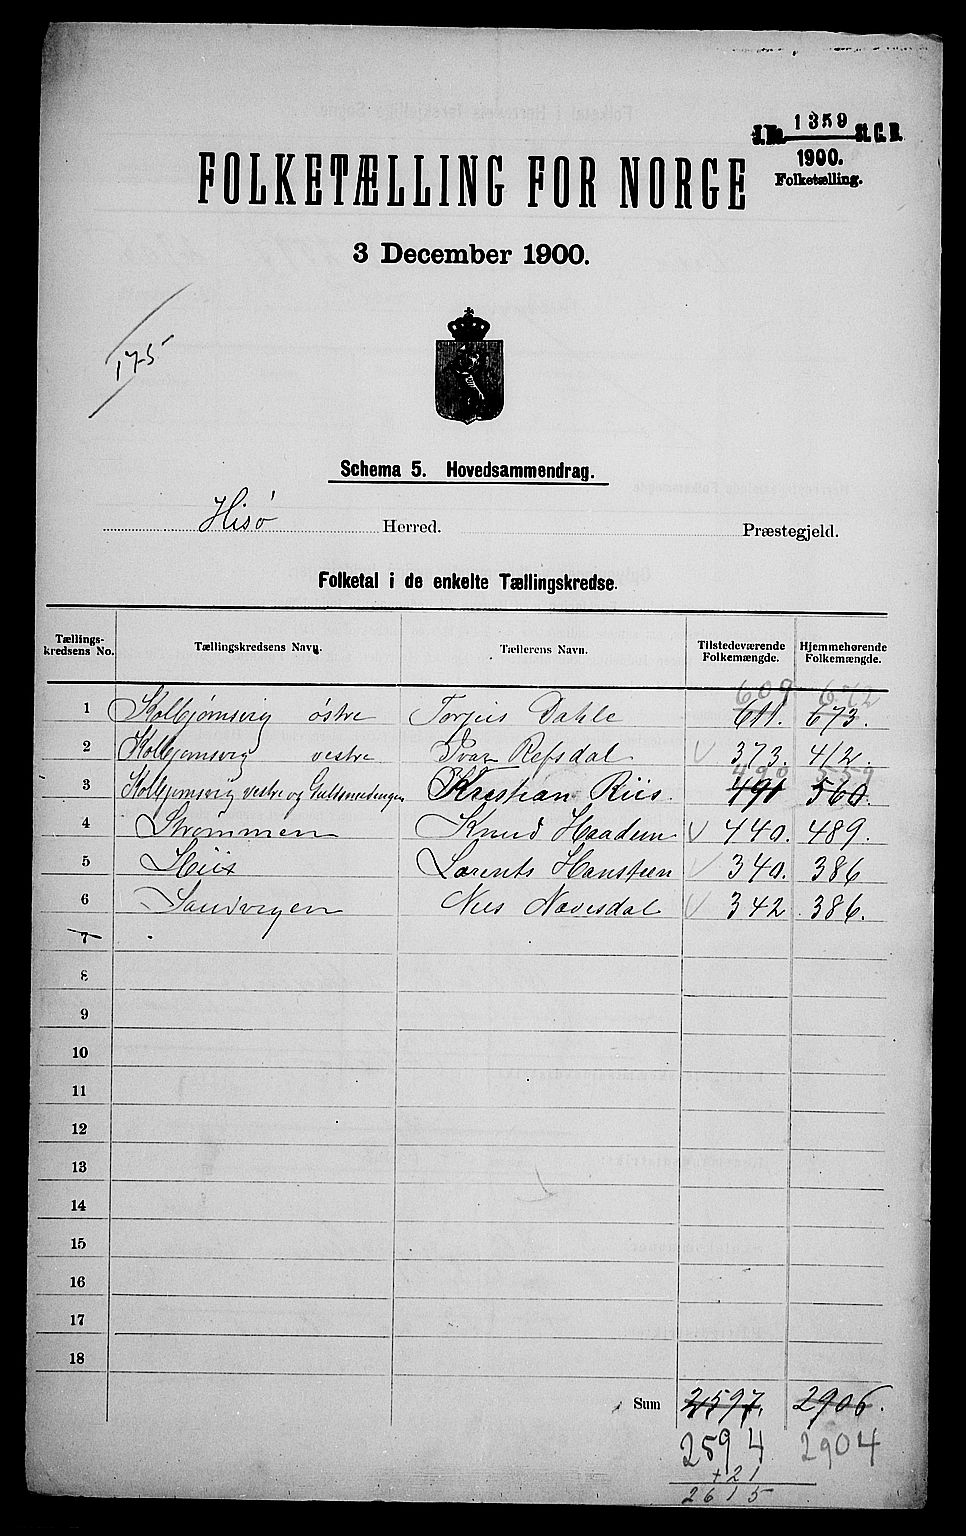 J.No. 1359 St. C. B.
1900.
Folketælling.
FOLKETÆLLING FOR NORGE
3 December 1900.
175
Schema 5. Hovedsammendrag.
Hisø Herred. Præstegjeld.
Folketal i de enkelte Tællingskredse.
Tællings-kredsens No. Tællingskredsens Navn. Tællerens Navn. Tilstedeværende Folkemængde. Hjemmehørende Folkemængde.
609 672
1 Kolbjørnsvig østre Torjus Dahle 611. 673.
2 Kolbjørnsvig vestre Ivar Refsdal V 373. 412.
490 559
3 Kolbjørnsvig vestre og Kristian Riis. 491 560.
4 Strømmen Knud Haadem V 440. 489.
5 Hiis Lorents Hansteen V 340. 386
6 Sandvigen Nils Navesdal V 342 386.
7
8
9
10
11
12
13
14
15
16
17
18
Sum 2597. 2906.
2594 2904
+21
2615